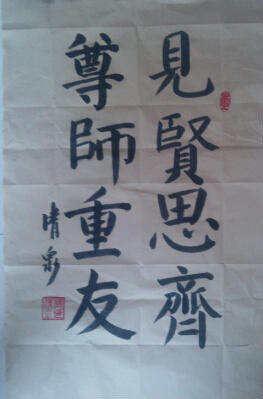 見賢思齊
尊師重友
清泉